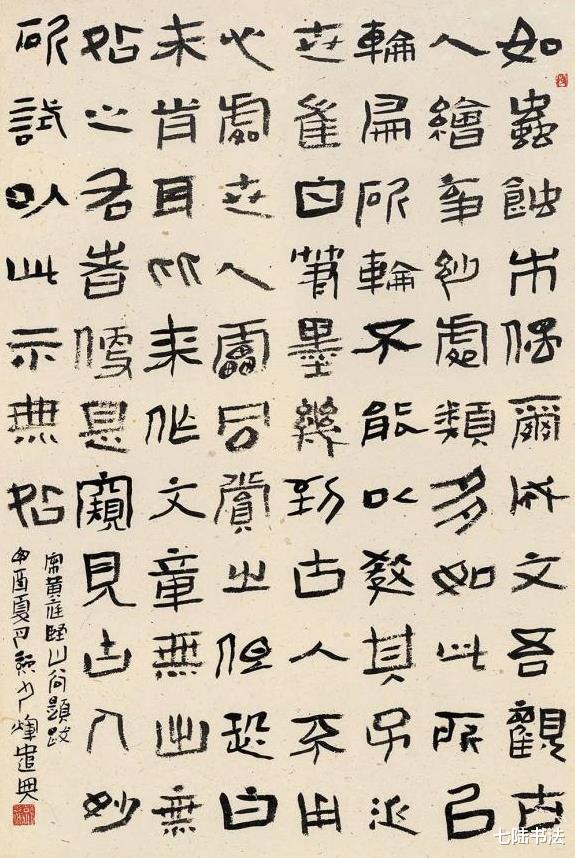 如蟲蝕木偶爾成文吾觀古
人繪事妙處類多如此所以
輪扁斫輪不能以教其子近
世崔白筆墨幾到古人不用
心處世人雷同賞之但恐白
未肯耳比來作文章無出無
咎之右者便是窺見古人妙
斫試以此示無咎
宋黃庭堅山谷題跋
酉夏月輝遣興
七陆书法